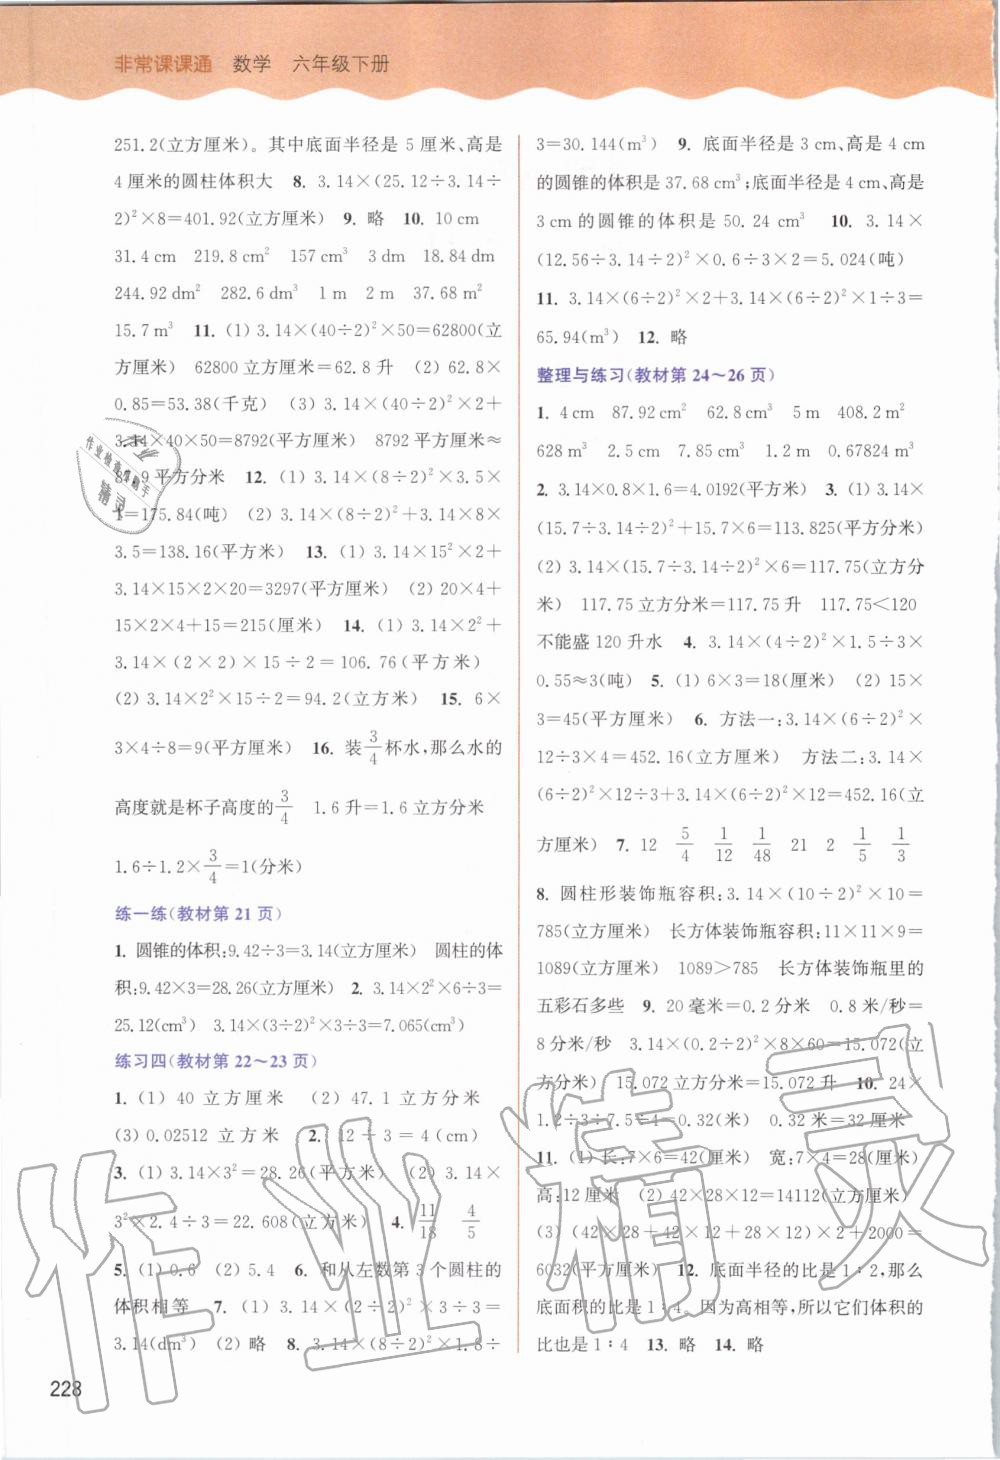 非常课课通 数学 六年级下册
251.2(立方厘米)。其中底面半径是 5 厘米、高是
4 厘米的圆柱体积大 8. 3.14×(25.12÷3.14÷
2)²×8=401.92(立方厘米) 9. 略 10. 10 cm
31.4 cm 219.8 cm² 157 cm³ 3 dm 18.84 dm
244.92 dm² 282.6 dm³ 1 m 2 m 37.68 m²
15.7 m³ 11. (1) 3.14×(40÷2)²×50=62800(立
方厘米) 62800 立方厘米=62.8 升 (2) 62.8×
0.85=53.38(千克) (3) 3.14×(40÷2)²×2+
3.14×40×50=8792(平方厘米) 8792 平方厘米≈
平方分米 12. (1) 3.14×(8÷2)²×3.5×
1=175.84(吨) (2) 3.14×(8÷2)²+3.14×8×
3.5=138.16(平方米) 13. (1) 3.14×15²×2+
3.14×15×2×20=3297(平方厘米) (2) 20×4+
15×2×4+15=215(厘米) 14. (1) 3.14×2²+
3.14×(2×2)×15÷2=106.76(平方米)
(2) 3.14×2²×15÷2=94.2(立方米) 15. 6×
3×4÷8=9(平方厘米) 16. 装3/4杯水,那么水的
高度就是杯子高度的3/4 1.6 升=1.6 立方分米
1.6÷1.2×3/4=1(分米)
练一练(教材第 21 页)
1. 圆锥的体积:9.42÷3=3.14(立方厘米) 圆柱的体
积:9.42×3=28.26(立方厘米) 2. 3.14×2²×6÷3=
25.12(cm³) 3.14×(3÷2)²×3÷3=7.065(cm³)
练习四(教材第 22～23 页)
1. (1) 40 立方厘米 (2) 47.1 立方分米
(3) 0.02512 立方米 2. 12÷3=4(cm)
3. (1) 3.14×3²=28.26(平方米) (2) 3.14×
3²×2.4÷3=22.608(立方米) 4. 11/18 4/5
5. (1) 0.6 (2) 5.4 6. 和从左数第 3 个圆柱的
体积相等 7. (1) 3.14×(2÷2)²×3÷3=
3.14(dm³) (2) 略 8. 3.14×(8÷2)²×1.8÷
228
3=30.144(m³) 9. 底面半径是 3 cm、高是 4 cm
的圆锥的体积是 37.68 cm³;底面半径是 4 cm、高是
3 cm 的圆锥的体积是 50.24 cm³ 10. 3.14×
(12.56÷3.14÷2)²×0.6÷3×2=5.024(吨)
11. 3.14×(6÷2)²×2+3.14×(6÷2)²×1÷3=
65.94(m³) 12. 略
整理与练习(教材第 24～26 页)
1. 4 cm 87.92 cm² 62.8 cm³ 5 m 408.2 m²
628 m³ 2.5 cm 7.85 cm³ 1.2 m 0.67824 m³
2. 3.14×0.8×1.6=4.0192(平方米) 3. (1) 3.14×
(15.7÷3.14÷2)²+15.7×6=113.825(平方分米)
(2) 3.14×(15.7÷3.14÷2)²×6=117.75(立方分
米) 117.75 立方分米=117.75 升 117.75<120
不能盛 120 升水 4. 3.14×(4÷2)²×1.5÷3×
0.55≈3(吨) 5. (1) 6×3=18(厘米) (2) 15×
3=45(平方厘米) 6. 方法一:3.14×(6÷2)²×
12÷3×4=452.16(立方厘米) 方法二:3.14×
(6÷2)²×12÷3+3.14×(6÷2)²×12=452.16(立
方厘米) 7. 12 5/4 1/12 1/48 21 2 1/5 1/3
8. 圆柱形装饰瓶容积:3.14×(10÷2)²×10=
785(立方厘米) 长方体装饰瓶容积:11×11×9=
1089(立方厘米) 1089>785 长方体装饰瓶里的
五彩石多些 9. 20 毫米=0.2 分米 0.8 米/秒=
8 分米/秒 3.14×(0.2÷2)²×8×60=15.072(立
方分米) 15.072 立方分米=15.072 升 10. 24×
1.2÷3÷7.5÷4=0.32(米) 0.32 米=32 厘米
11. (1) 长:7×6=42(厘米) 宽:7×4=28(厘米)
高:12 厘米 (2) 42×28×12=14112(立方厘米)
(3) (42×28+42×12+28×12)×2+2000=
6032(平方厘米) 12. 底面半径的比是 1∶2,那么
底面积的比是 1∶4。因为高相等,所以它们体积的
比也是 1∶4 13. 略 14. 略
作业精灵